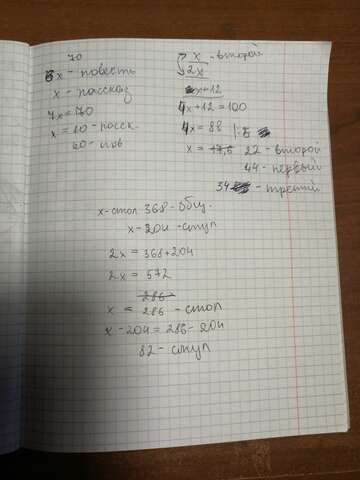 70
6x - повесть
x - рассказ
7x = 70
x = 10 - расск.
60 - пов
x - второй
2x
x+12
4x + 12 = 100
4x = 88 | : 5
x = 17,6 22 - второй
44 - первый
34 - третий
x - стол 368 - общ.
x - 204 - стул
2x = 368 + 204
2x = 572
286
x = 286 - стол
x - 204 = 286 - 204
82 - стул